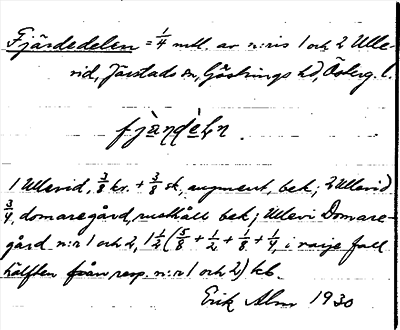 Fjärdedelen = 1/4 mtl. av n:ris 1 och 2 Ulle-
vid, Järstads sn, Göstrings hd, Österg. l.
fjä̀ṇḍèḷṇ.
1 Ullevid, 3/8 kr. + 3/8 sk, augment, bek; 2 Ullevid
3/4, domaregård, rusthåll bek; Ullevi Domare-
gård n:r 1 och 2, 1 1/2 (5/8 + 1/2 + 1/8 + 1/4, i varje fall
hälften från resp. n:r 1 och 2) kb.
Erik Alm 1930